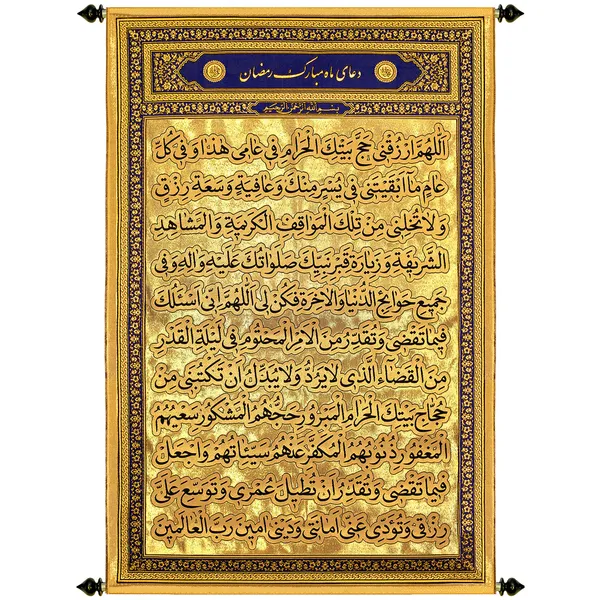 دعای ماه مبارک رمضان
بسم الله الرحمن الرحیم
اللهم ارزقني حج بيتك الحرام في عامي هذا و في كل
عام ما ابقيتني في يسر منك و عافية و سعة رزق
و لا تخلني من تلك المواقف الكريمة و المشاهد
الشريفة و زيارة قبر نبيك صلواتك عليه و اله و في
جميع حوائج الدنيا و الاخرة فكن لي اللهم اني اسئلك
فيما تقضي و تقدر من الامر المحتوم في ليلة القدر
من القضاء الذي لا يرد و لا يبدل ان تكتبني من
حجاج بيتك الحرام المبرور حجهم المشكور سعيهم
المغفور ذنوبهم المكفر عنهم سيئاتهم و اجعل
فيما تقضي و تقدر ان تطيل عمري و توسع علي
رزقي و تودي عني امانتي و ديني امين رب العالمين